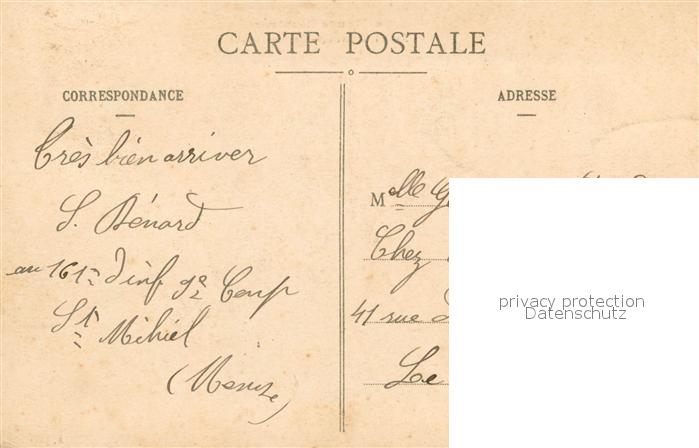 CARTE POSTALE
CORRESPONDANCE
Très bien arriver
S. Bénard
au 161e d'inf
St Mihiel
(Meuse)
ADRESSE
Melle
Chez
41 rue
Le
privacy protection
Datenschutz